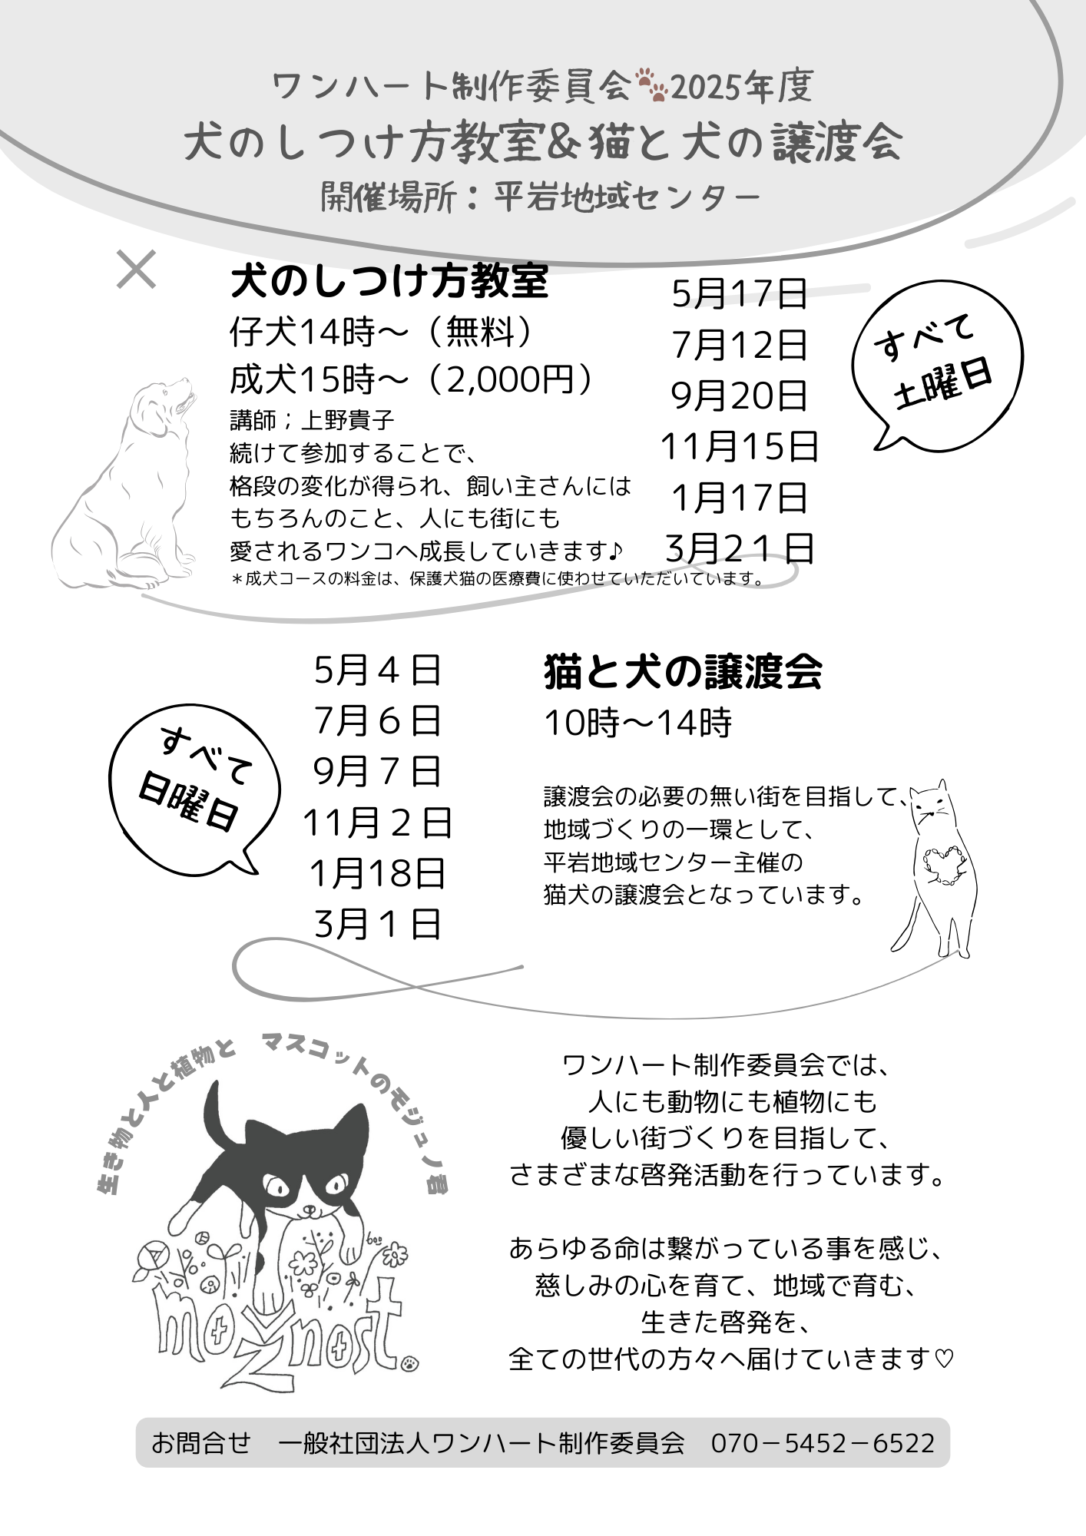 ワンハート制作委員会🐾2025年度
犬のしつけ方教室&猫と犬の譲渡会
開催場所：平岩地域センター
犬のしつけ方教室
仔犬14時〜（無料）
成犬15時〜（2,000円）
講師；上野貴子
続けて参加することで、
格段の変化が得られ、飼い主さんには
もちろんのこと、人にも街にも
愛されるワンコへ成長していきます♪
＊成犬コースの料金は、保護犬猫の医療費に使わせていただいています。
5月17日
7月12日
9月20日
11月15日
1月17日
3月21日
すべて
土曜日
5月4日
7月6日
9月7日
11月2日
1月18日
3月1日
すべて
日曜日
猫と犬の譲渡会
10時〜14時
譲渡会の必要の無い街を目指して、
地域づくりの一環として、
平岩地域センター主催の
猫犬の譲渡会となっています。
生き物と人と植物と　マスコットのモジュノ君
boo
moZnost.
ワンハート制作委員会では、
人にも動物にも植物にも
優しい街づくりを目指して、
さまざまな啓発活動を行っています。
あらゆる命は繋がっている事を感じ、
慈しみの心を育て、地域で育む、
生きた啓発を、
全ての世代の方々へ届けていきます♡
お問合せ　一般社団法人ワンハート制作委員会　070－5452－6522